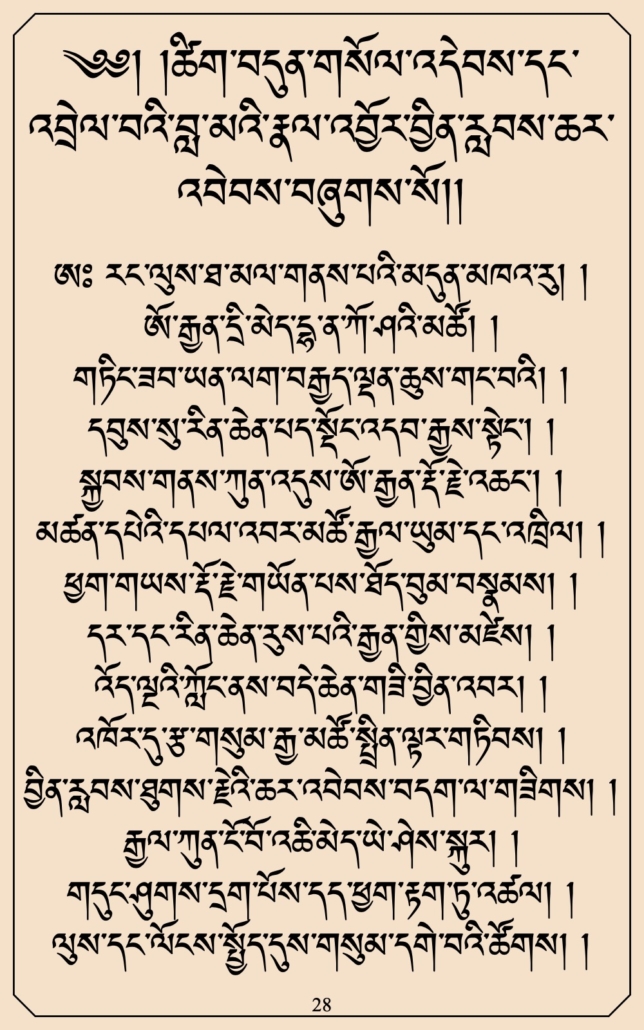 ༄༅། །ཚིག་བདུན་གསོལ་འདེབས་དང་
འབྲེལ་བའི་བླ་མའི་རྣལ་འབྱོར་བྱིན་རླབས་ཆར་
འབེབས་བཞུགས་སོ།།
ཨཿ རང་ལུས་ཐ་མལ་གནས་པའི་མདུན་མཁའ་རུ། །
ཨོ་རྒྱན་དྲི་མེད་དྷ་ན་ཀོ་ཤའི་མཚོ། །
གཏིང་ཟབ་ཡན་ལག་བརྒྱད་ལྡན་ཆུས་གང་བའི། །
དབུས་སུ་རིན་ཆེན་པད་སྡོང་འདབ་རྒྱས་སྟེང་། །
སྐྱབས་གནས་ཀུན་འདུས་ཨོ་རྒྱན་རྡོ་རྗེ་འཆང་། །
མཚན་དཔེའི་དཔལ་འབར་མཚོ་རྒྱལ་ཡུམ་དང་འཁྲིལ། །
ཕྱག་གཡས་རྡོ་རྗེ་གཡོན་པས་ཐོད་བུམ་བསྣམས། །
དར་དང་རིན་ཆེན་རུས་པའི་རྒྱན་གྱིས་མཛེས། །
འོད་ལྔའི་ཀློང་ནས་བདེ་ཆེན་གཟི་བྱིན་འབར། །
འཁོར་དུ་རྩ་གསུམ་རྒྱ་མཚོ་སྤྲིན་ལྟར་གཏིབས། །
བྱིན་རླབས་ཐུགས་རྗེའི་ཆར་འབེབས་བདག་ལ་གཟིགས། །
རྒྱལ་ཀུན་ངོ་བོ་འཆི་མེད་ཡེ་ཤེས་སྐུར། །
གདུང་ཤུགས་དྲག་པོས་དད་ཕྱག་རྟག་ཏུ་འཚལ། །
ལུས་དང་ལོངས་སྤྱོད་དུས་གསུམ་དགེ་བའི་ཚོགས། །
28